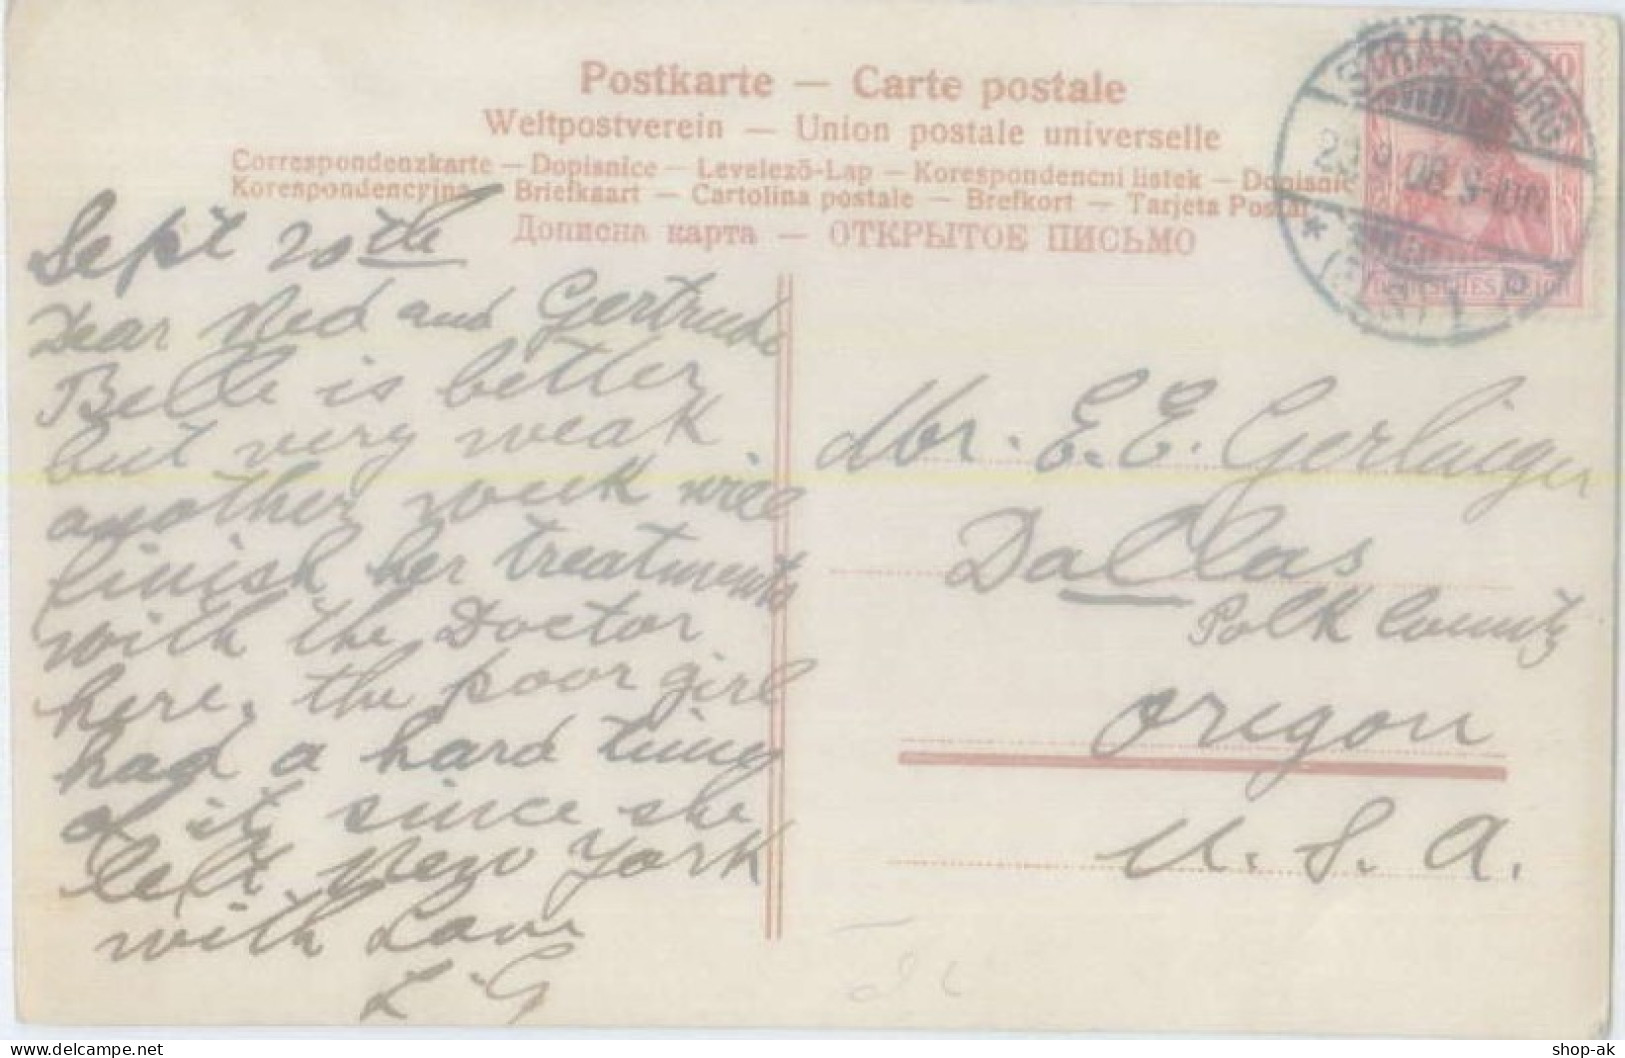 Postkarte — Carte postale
Weltpostverein — Union postale universelle
Correspondenzkarte — Dopisnice — Levelező-Lap — Korespondencni listek — Dopisnic
Korespondencyjna — Briefkaart — Cartolina postale — Brefkort — Tarjeta Postal
Дописна карта — ОТКРЫТОЕ ПИСЬМО
STRASSBURG
08. 9-10N
10
DEUTSCHES REICH
Sept 20th
Dear Ned and Gertrude
Belle is better
but very weak
another week will
finish her treatments
with the Doctor
here, the poor girl
had a hard time
of it since she
left New York
with Love
L. G
Mr. E. E. Gerlinger
Dallas
Polk County
Oregon
U. S. A.
shop-ak